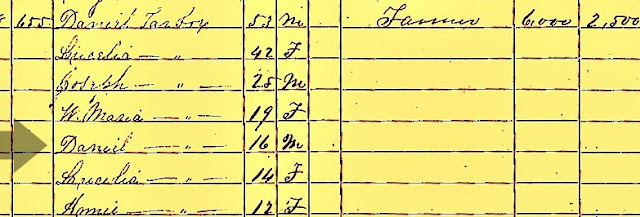 655 Daniel Tar Fox 53 M Farmer 6,000 2,500
Lucelia — " — 42 F
Joseph — " — 25 M
W. Maria — " — 19 F
Daniel — " — 16 M
Lucelia — " — 14 F
— " — 12 F